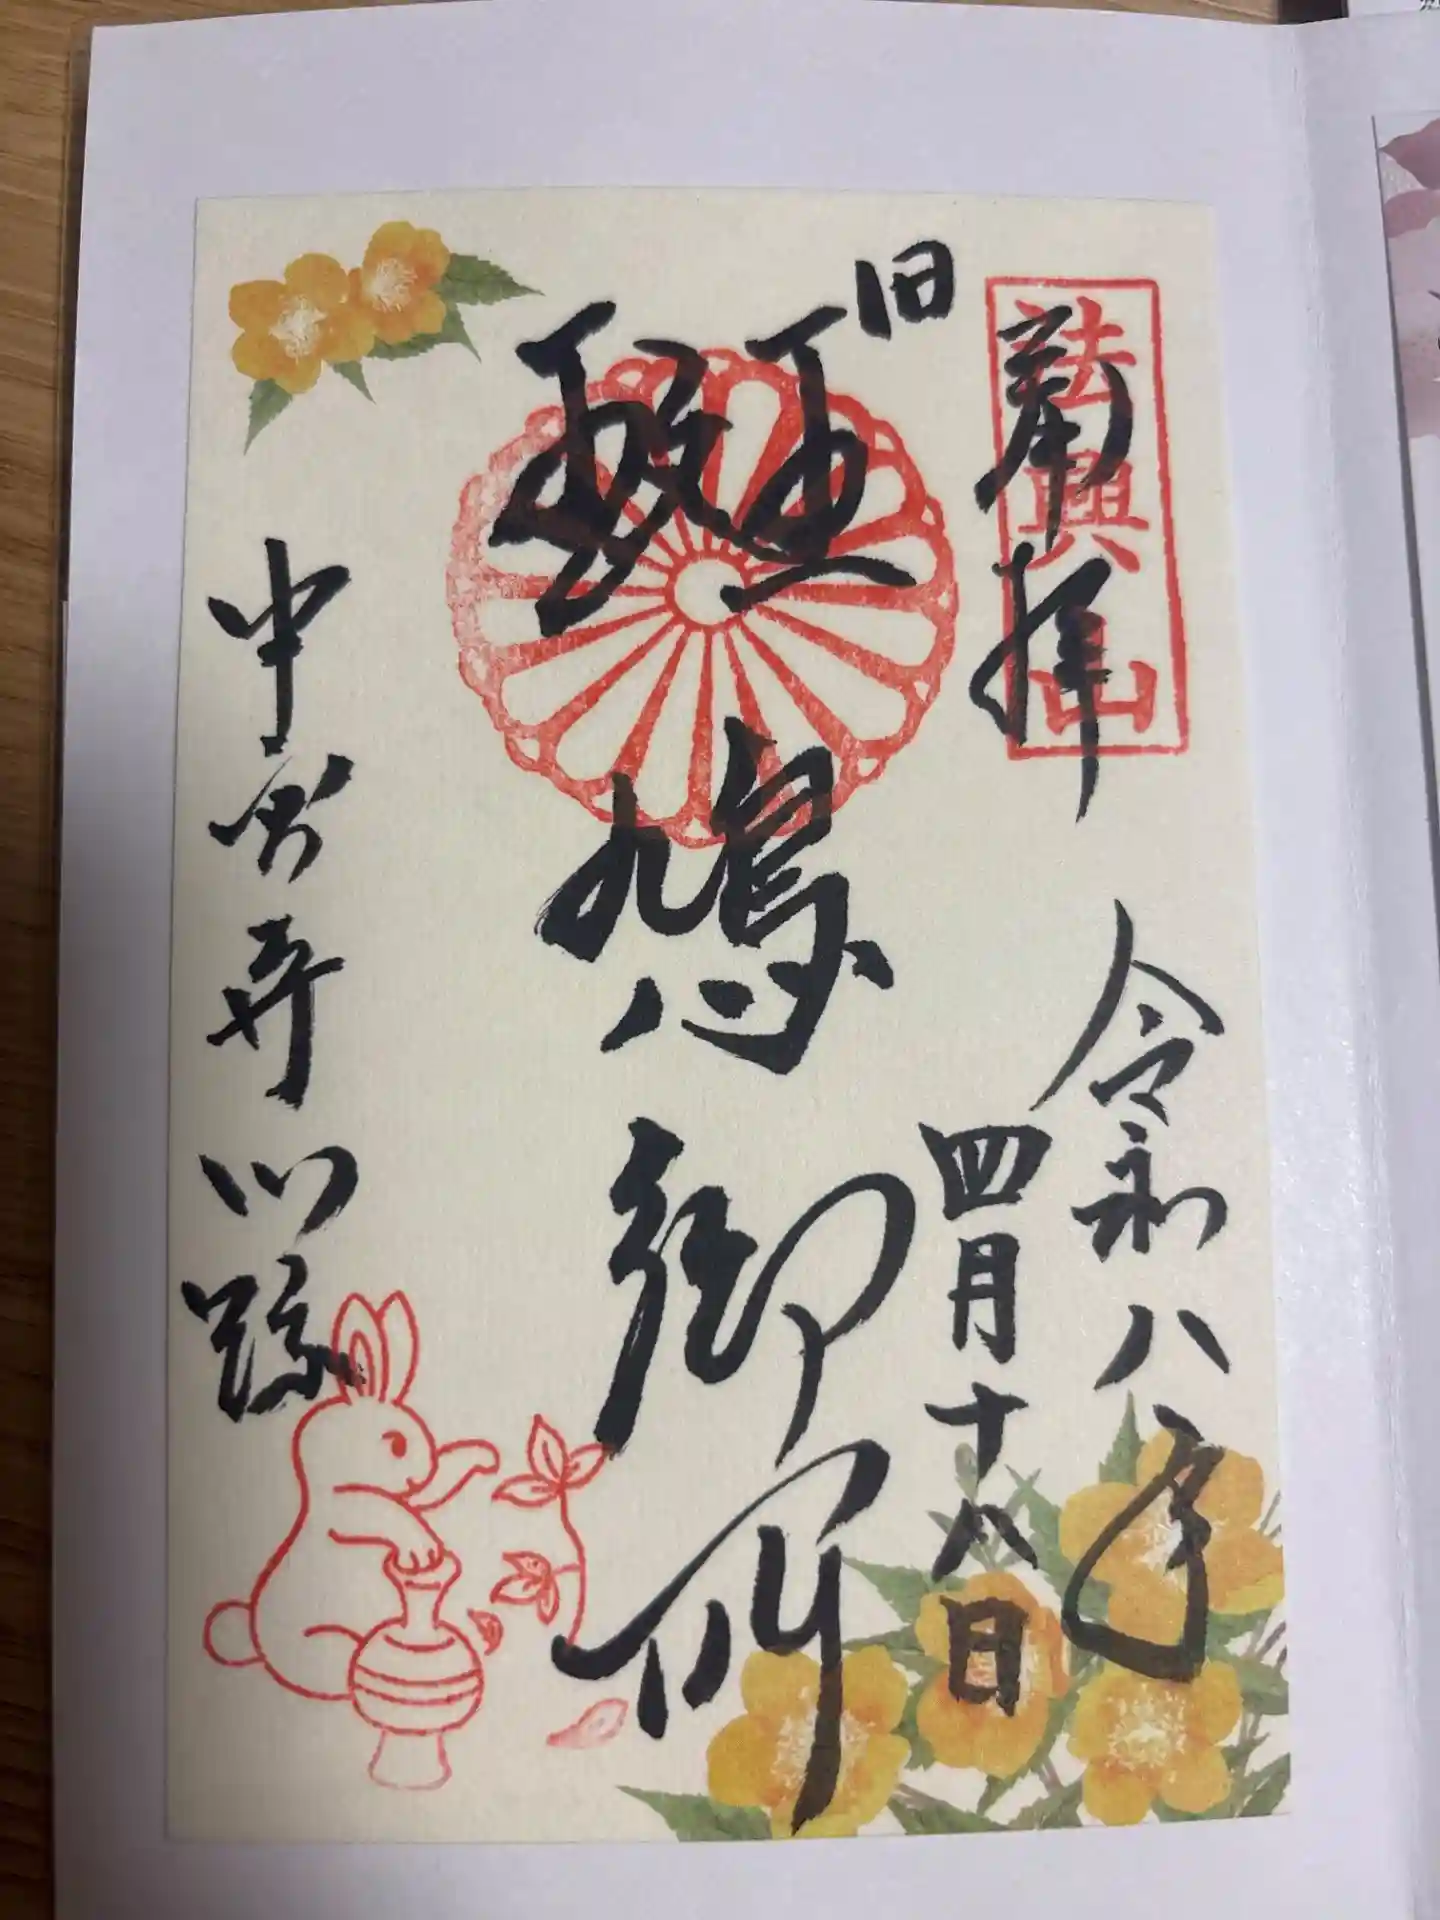 奉拝
法興山
令和八年
四月十八日
旧斑鳩御所
中宮寺門跡